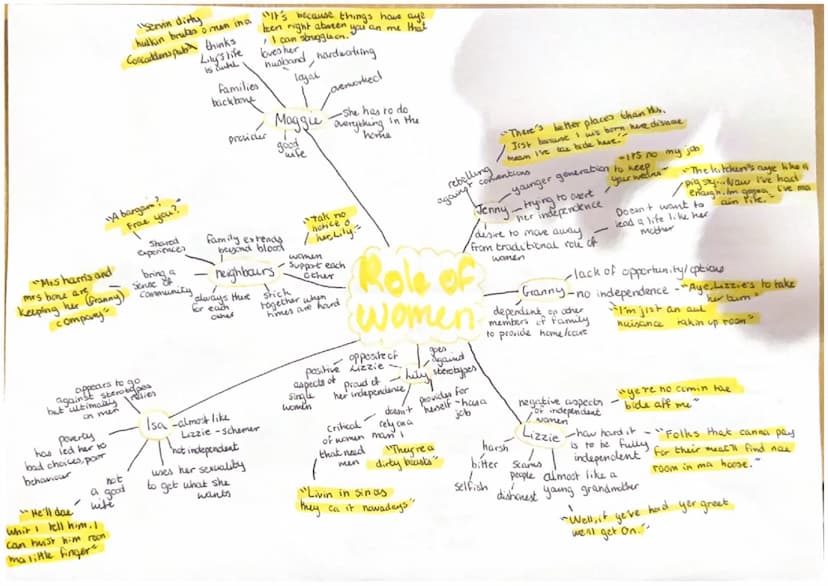 Role of
women
"Servin dirty
hulkin brutes o men in a
Cowcaddens pub"
"It's because things have aye
been right atween you an me that
I can struggle on.
thinks
Lily's life
is awful
loves her
husband
hardworking
loyal
overworked
families
backbone
Maggie
She has to do
everything in the
home
provider
good
wife
"There's better places than this.
Jist because I wis born here disnae
mean I've tae bide here."
rebelling
against conventions
younger generation
- "It's no my job
to keep
your weans"
Jenny
trying to assert
her independence
"The kitchen's aye like a
pig sty... Now I've had
enough. Im gonna live ma
ain life."
Doesn't want to
lead a life like her
mother
desire to move away
from traditional role of
women
Granny
lack of opportunity/options
no independence - "Aye, Lizzie's to take
her turn"
dependent on other
members of family
to provide home/care
"I'm jist an auld
nuisance takin up room"
Lizzie
negative aspects
of independent
women
"ye're no comin tae
bide aff me"
how hard it
is to be fully
independent
"Folks that canna pay
for their meat'll find nae
room in ma hoose."
harsh
bitter
selfish
scams
people
dishonest
almost like a
young grandmother
"Well, if ye've had yer greet
we'll get on."
Lily
goes
against
sterotypes
opposite of
Lizzie
positive
aspects of
single
women
proud of
her independence
provides for
herself - has a
job
doesn't
rely on a
man
critical
of women
that need
men
"They're a
dirty beasts"
"Livin in sin as
they ca it nowadays"
Isa
appears to go
against sterotypes
but ultimately relies
on men
almost like
Lizzie - schemer
not independent
poverty
has led her to
bad choices, poor
behaviour
uses her sexuality
to get what she
wants
not
a good
wife
"He'll dae
whit I tell him. I
can twist him roon
ma little finger"
neighbours
"A bargain?
Frae you?"
shared
experiences
family extends
beyond blood
"Tak no
notice o
her, Lily."
women
support each
other
bring a
sense of
community
"Mrs harris and
mrs bone are
keeping her (Granny)
company"
always there
for each
other
stick
together when
times are hard